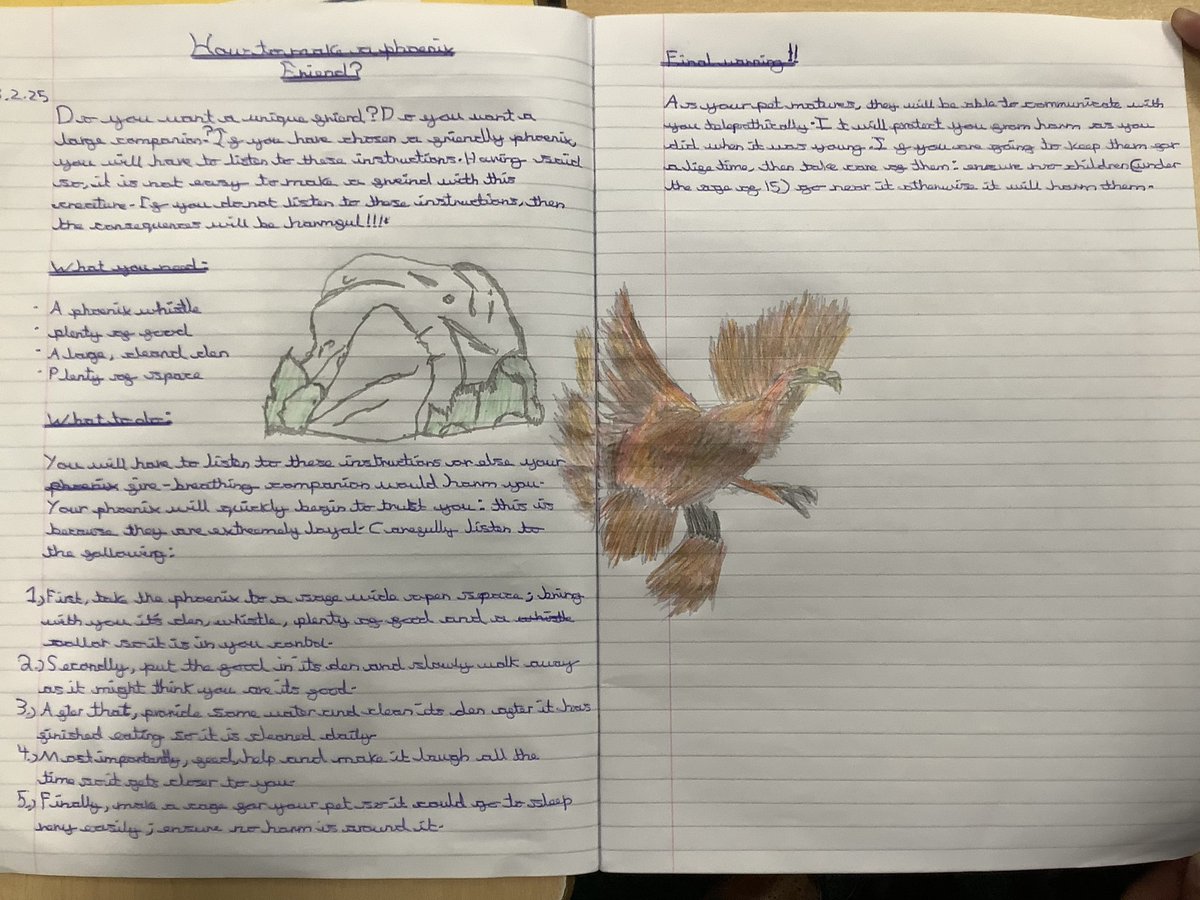 How to make a phoenix
Friend?
3.2.25
Do you want a unique friend? Do you want a
large companion? If you have chosen a friendly phoenix,
you will have to listen to these instructions. Having said
so, it is not easy to make a freind with this
creature. If you do not listen to these instructions, then
the consequences will be harmful!!!
What you need:
· A phoenix whistle
· plenty of food
· A lage, cleand den
· Plenty of space
What to do:
You will have to listen to these instructions or else your
phoenix fire-breathing companion would harm you.
Your phoenix will quickly begin to trust you: this is
because they are extremely loyal. Carefully listen to
the following:
1) First, take the phoenix to a safe wide open space; bring
with you it's den, whistle, plenty of food and a whistle
collar so it is in you contol.
2.) Secondly, put the food in its den and slowly walk away
as it might think you are its food.
3.) After that, provide some water and clean its den after it has
finished eating so it is cleaned daily
4.) Most importantly, feed, help and make it laugh all the
time so it gets closer to you.
5.) Finally, make a cage for your pet so it could go to sleep
very easily; ensure no harm is around it.
Final warning!!
As your pet matures, they will be able to communicate with
you telepathically. It will protect you from harm as you
did when it was young. If you are going to keep them for
a life time, then take care of them: ensure no children (under
the age of 15) go near it otherwise it will harm them.